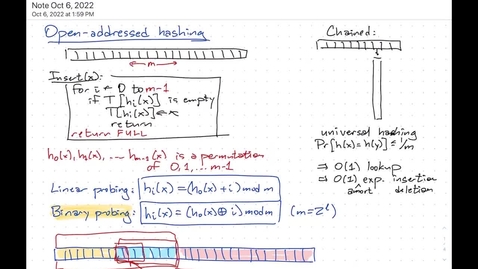 Note Oct 6, 2022
Oct 6, 2022 at 1:59 PM
Open-addressed hashing
m
Insert(x):
for i ← 0 to m-1
if T[hᵢ(x)] is empty
T[hᵢ(x)] ← x
return
return FULL
h₀(x), h₁(x), ... hₘ₋₁(x) is a permutation
of 0,1,...m-1
Linear probing: hᵢ(x) = (h₀(x) + i) mod m
Binary probing: hᵢ(x) = (h₀(x) ⊕ i) mod m (m=2^ℓ)
Chained:
universal hashing
Pr[h(x)=h(y)] ≤ 1/m
⇒ O(1) lookup
⇒ O(1) exp. insertion
amort deletion